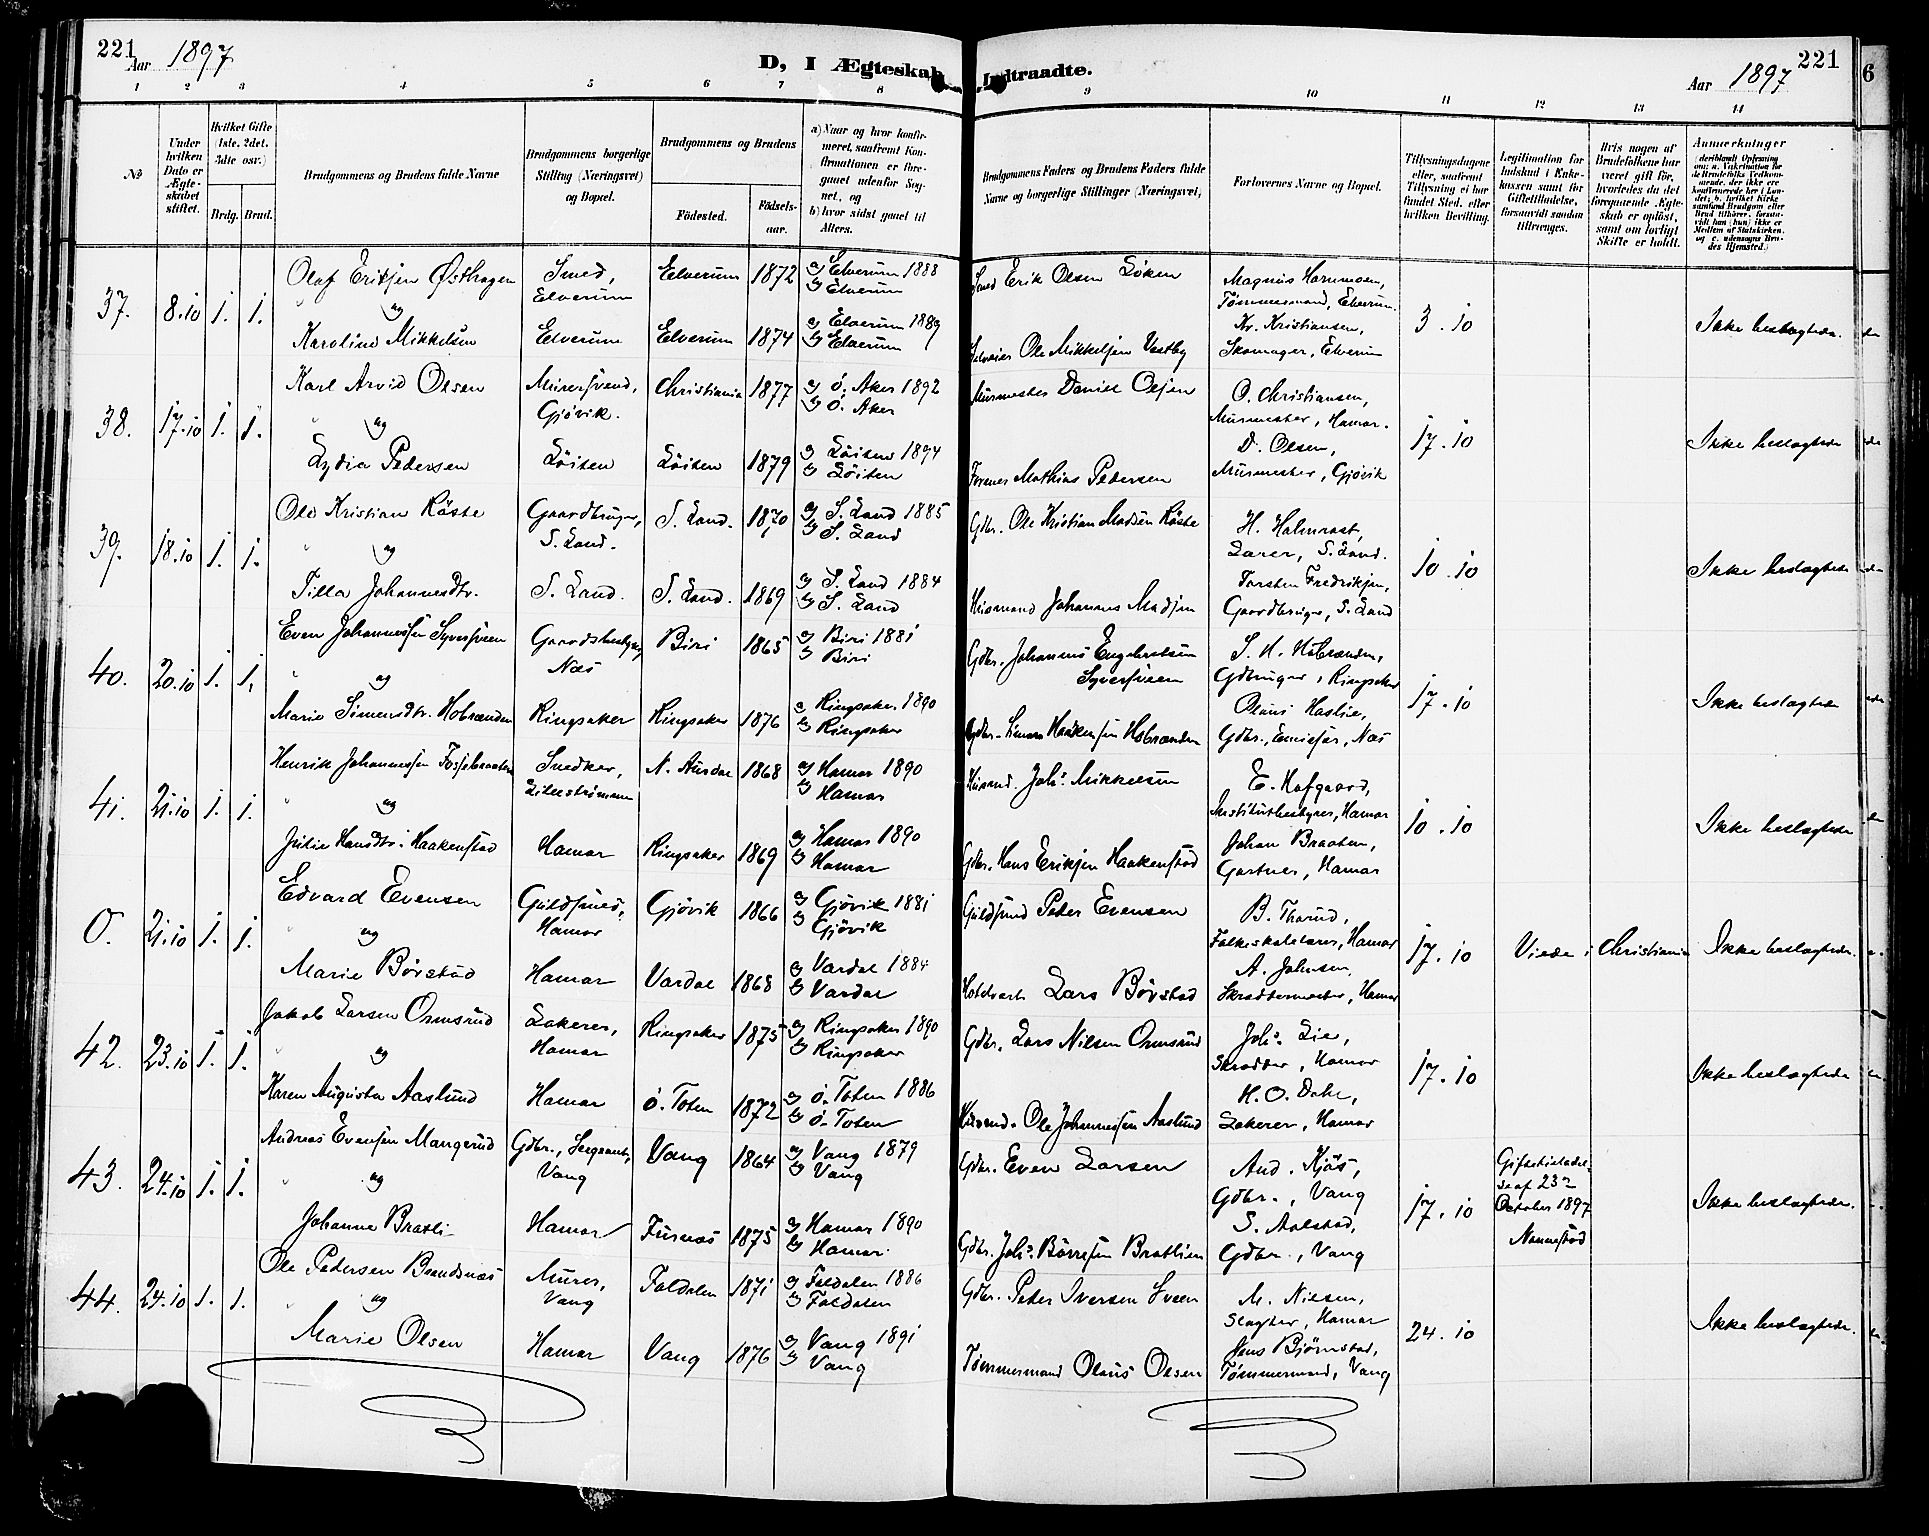 221
Aar 1897
D, I Ægteskab Indtraadte.
221
Aar 1897
1 2 3 4 5 6 7 8 9 10 11 12 13 14
No
Under hvilken Dato er Ægteskabet stiftet.
Hvilket Gifte (1ste, 2det, 3die osv.)
Brdg. Brud.
Brudgommens og Brudens fulde Navne
Brudgommens borgerlige Stilling (Næringsvei) og Bopæl.
Brudgommens og Brudens
Födested. Födselsaar.
a) Naar og hvor konfirmeret, saafremt Konfirmationen er foregaaet udenfor Sognet, og
b) hvor sidst gaaet til Alters.
Brudgommens Faders og Brudens Faders fulde Navne og borgerlige Stillinger (Næringsvei,
Forlovernes Navne og Bopæl.
Tillysningsdagene eller, saafremt Tillysning ei har fundet Sted, efter hvilken Bevilling.
Legitimation for Indskud i Enkekassen samt for Giftetilladelse, forsaavidt saadan tiltrænges.
Hvis nogen af Brudefolkene har været gift för, hvorledes da det foregaaende Ægteskab er oplöst, samt om lovligt Skifte er holdt.
Anmærkninger
37. 8.10 1. 1.
Olaf Eriksen Østhagen Smed, Elverum Elverum 1872 a) Elverum 1888 b) Elverum
Smed Erik Olsen Löken
Magnus Hornmoen, Tømmermand, Elverum.
Kr. Kristiansen, Skomager, Elverum
3.10
Ikke beslægtede.
og
Karoline Mikkelsen Elverum Elverum 1874 a) Elverum 1889 b) Elverum
Selveier Ole Mikkelsen Vestby
38. 17.10 1. 1.
Karl Arvid Olsen Murersvend, Gjövik. Christiania 1877 a) Ö. Aker 1892 b) Ö. Aker
Murmester Daniel Olsen
O. Christiansen, Murmester, Hamar.
D. Olsen, Murmester, Gjövik
17.10
Ikke beslægtede
og
Lydia Pedersen Löiten Löiten 1879 a) Löiten 1894 b) Löiten
Mathias Pedersen
39. 18.10 1. 1.
Ole Kristian Röste Gaardbruger, S. Land. S. Land. 1870 a) S. Land 1885 b) S. Land
Gdbr. Ole Kristian Madsen Röste
H. Halmrast, Lærer, S. Land.
Torsten Fredriksen, Gaardbruger, S. Land
10.10
Ikke beslægtede
og
Tilla Johannesdtr. S. Land. S. Land. 1869 a) S. Land 1884 b) S. Land
Husmand Johannes Madsen
40. 20.10 1. 1.
Even Johannessen Syversveen Gaardsbestyrer, Næs Biri 1865 a) Biri 1881 b) Biri
Gdbr. Johannes Engebretsen Syversveen
S. H. Hobrænden, Gdbruger, Ringsaker
Olaus Haslie, Gdbr., Næs
17.10
Ikke beslægtede
og
Marie Simensdtr. Hobrænden Ringsaker Ringsaker 1876 a) Ringsaker 1890 b) Ringsaker
Gdbr. Simen Haakensen Hobrænden
41. 21.10 1. 1.
Henrik Johannessen Fossebraaten Snedker, Lillestrømmen N. Aurdal 1868 a) Hamar 1890 b) Hamar
Husmd. Johs. Mikkelsen
E. Hafgaard, Institutbestyrer, Hamar
Johan Braaten, Gartner, Hamar
10.10
Ikke beslægtede
og
Julie Hansdtr. Haakenstad Hamar Ringsaker 1869 a) Hamar 1890 b) Hamar
Gdbr. Hans Eriksen Haakenstad
0. 21.10 1. 1.
Edvard Evensen Guldsmed, Hamar Gjövik 1866 a) Gjövik 1881 b) Gjövik
Guldsmed Peter Evensen
B. Thorud, Folkeskolelærer, Hamar
A. Johnsen, Skræddermester, Hamar
17.10
Viede i Christiania
Ikke beslægtede.
og
Marie Børstad Hamar Vardal 1868 a) Vardal 1884 b) Vardal
Hotelvært Lars Børstad
42. 23.10 1. 1.
Jakob Larsen Ormsrud Lakerer, Hamar Ringsaker 1875 a) Ringsaker 1890 b) Ringsaker
Gdbr. Lars Nilsen Ormsrud
Johs. Lie, Skrædder, Hamar
H. O. Dahl, Lakerer, Hamar
17.10
Ikke beslægtede
og
Karen Augusta Aaslund Hamar Ö. Toten 1872 a) Ö. Toten 1886 b) Ö. Toten
Husmd. Ole Johannessen Aaslund
43. 24.10 1. 1.
Andreas Evensen Mangerud Gdbr., Sergeant, Vang Vang 1864 a) Vang 1879 b) Vang
Gdbr. Even Larsen
And. Kjös, Gdbr., Vang
S. Aalstad, Gdbr., Vang
17.10
Giftetilladelse af 23de October 1897 Nannestad
Ikke beslægtede.
og
Johanne Bratli Hamar Furnæs 1875 a) Hamar 1890 b) Hamar.
Gdbr. Johs. Börresen Bratlien
44. 24.10 1. 1.
Ole Pedersen Brandsnæs Murer, Vang Foldalen 1871 a) Foldalen 1886 b) Foldalen
Gdbr. Peter Iversen Sveen
M. Nilsen, Slagter, Hamar
Jens Bjørnstad, Tømmermand, Vang
24.10
Ikke beslægtede.
og
Marie Olsen Hamar Vang 1876 a) Vang 1891 b) Vang
Tömmermand Olaus Olsen
6